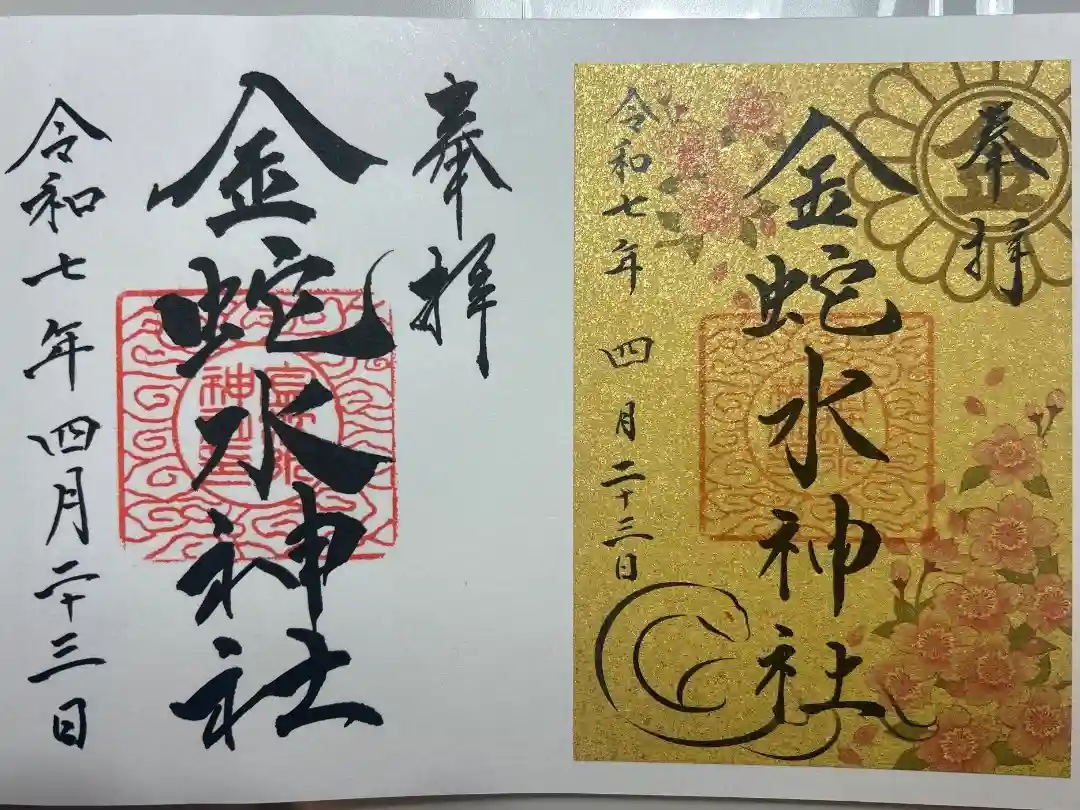 奉拝
金蛇水神社
令和七年四月二十三日
金
奉拝
金蛇水神社
令和七年四月二十三日